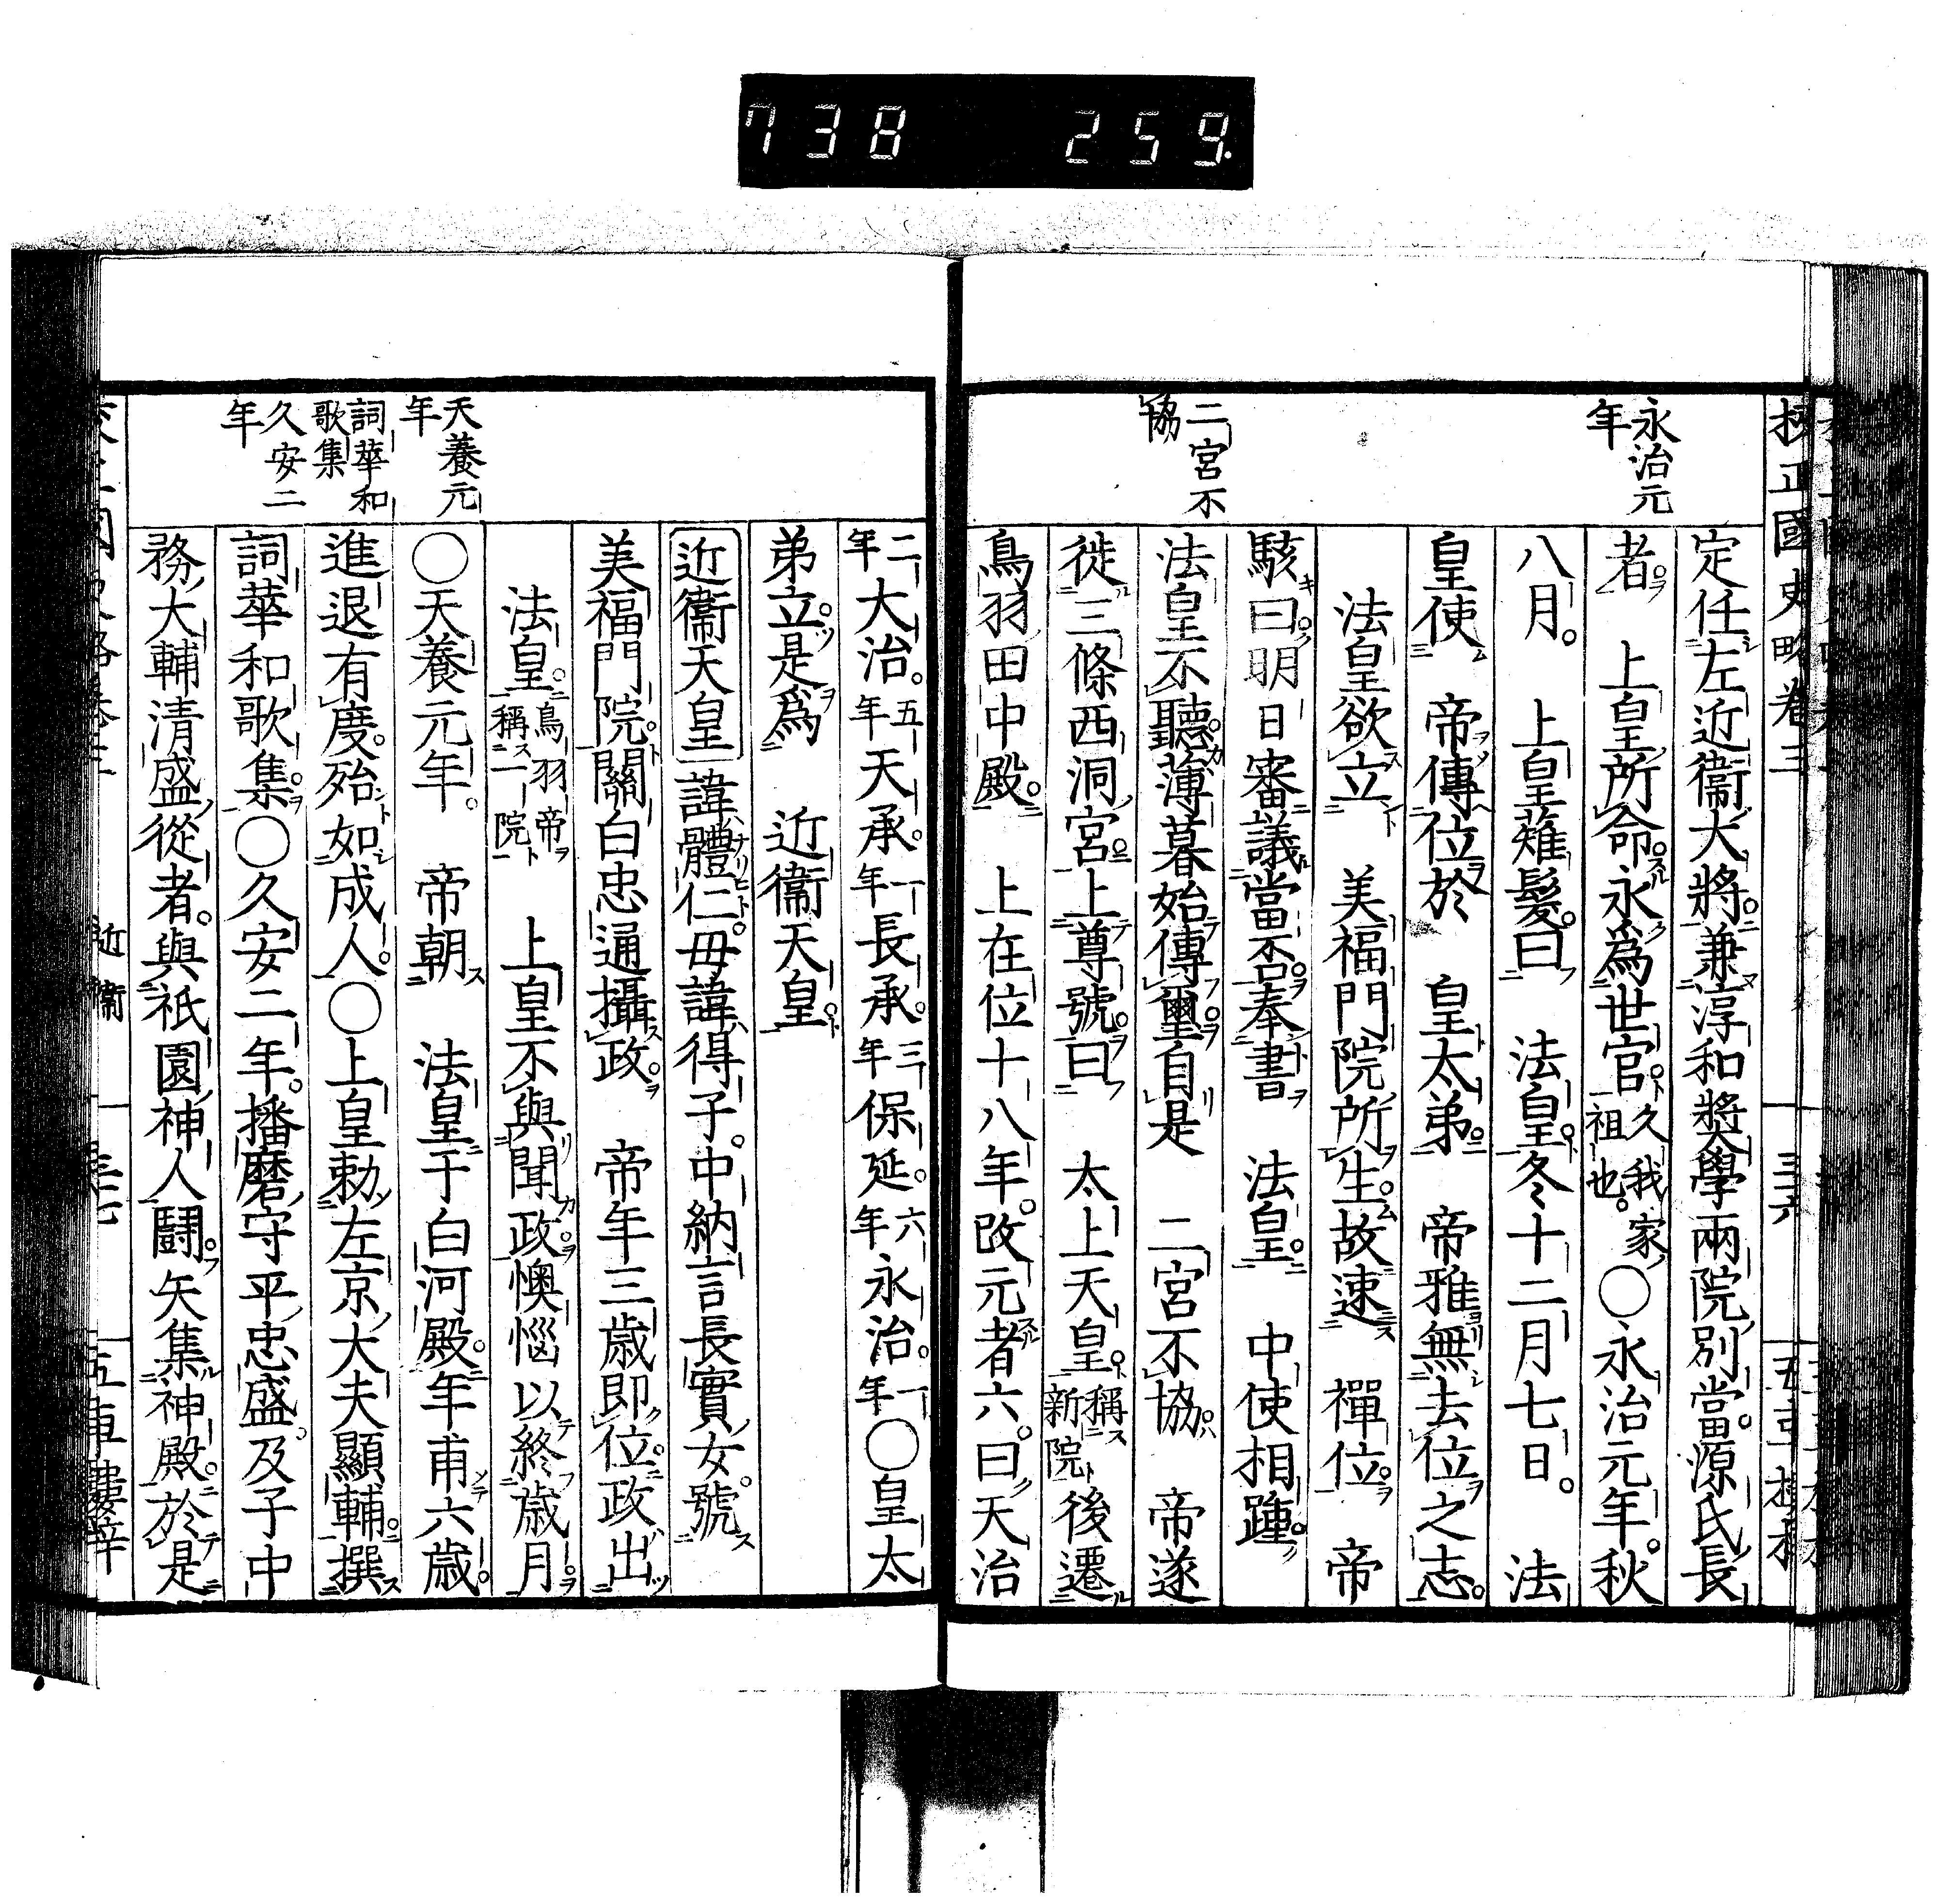 738 259
永治元
年
二宮不
協
定任左近衞大將兼淳和奬學兩院別當源氏長
者 上皇所命永爲世官久我家祖也○永治元年秋
八月 上皇薙髮曰 法皇冬十二月七日 法
皇使 帝傳位於 皇太弟 帝雅無去位之志
法皇欲立 美福門院所生故速 禪位 帝
駭曰明日審議當否奉書 法皇 中使相踵
法皇不聽薄暮始傳璽自是 二宮不協 帝遂
徙三條西洞宮上尊號曰 太上天皇稱新院後遷
鳥羽田中殿 上在位十八年改元者六曰天治
天養元
年
詞華和
歌集
久安二
年
二年大治五年天承一年長承三年保延六年永治一年○皇太
弟立是爲 近衞天皇
近衞天皇諱體仁母諱得子中納言長實女號
美福門院關白忠通攝政 帝年三歳即位政出
法皇鳥羽帝稱一院 上皇不與聞政懊惱以終歳月
○天養元年 帝朝 法皇于白河殿年甫六歳
進退有度殆如成人○上皇勅左京大夫顯輔撰
詞華和歌集○久安二年播磨守平忠盛及子中
務大輔清盛從者與祇園神人鬪矢集神殿於是